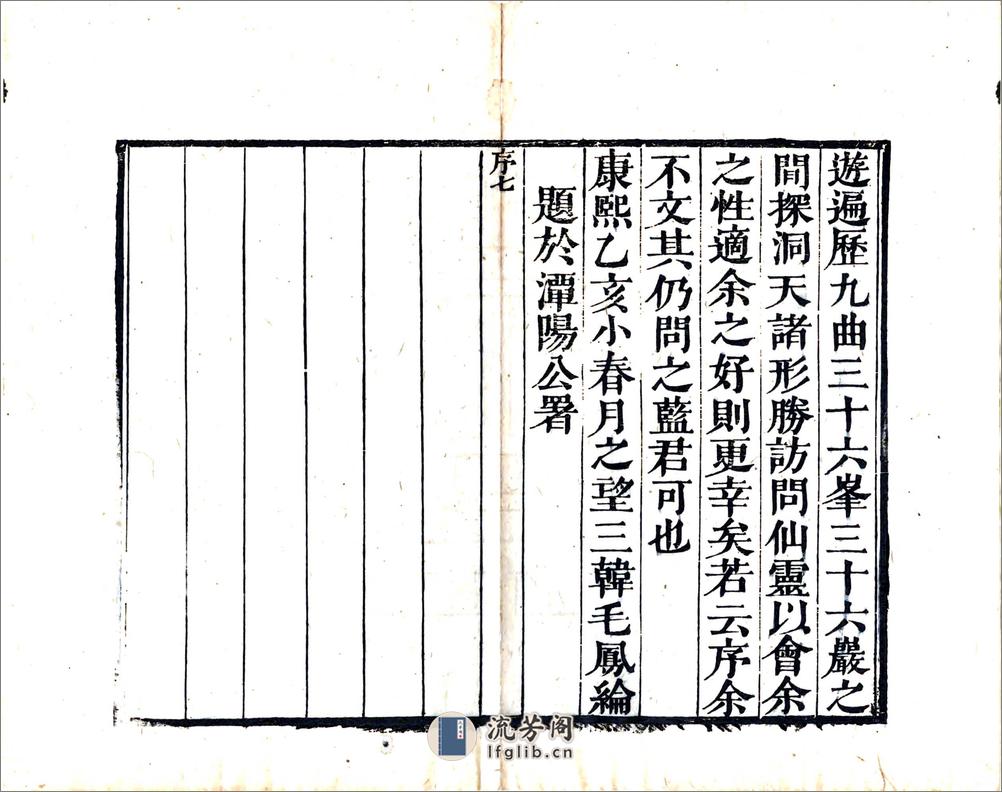 遊遍歷九曲三十六峯三十六巖之
間探洞天諸形勝訪問仙靈以會余
之性適余之好則更幸矣若云序余
不文其仍問之藍君可也
康熙乙亥小春月之望三韓毛鳳綸
題於潭陽公署
序七
流芳阁
lfglib.cn